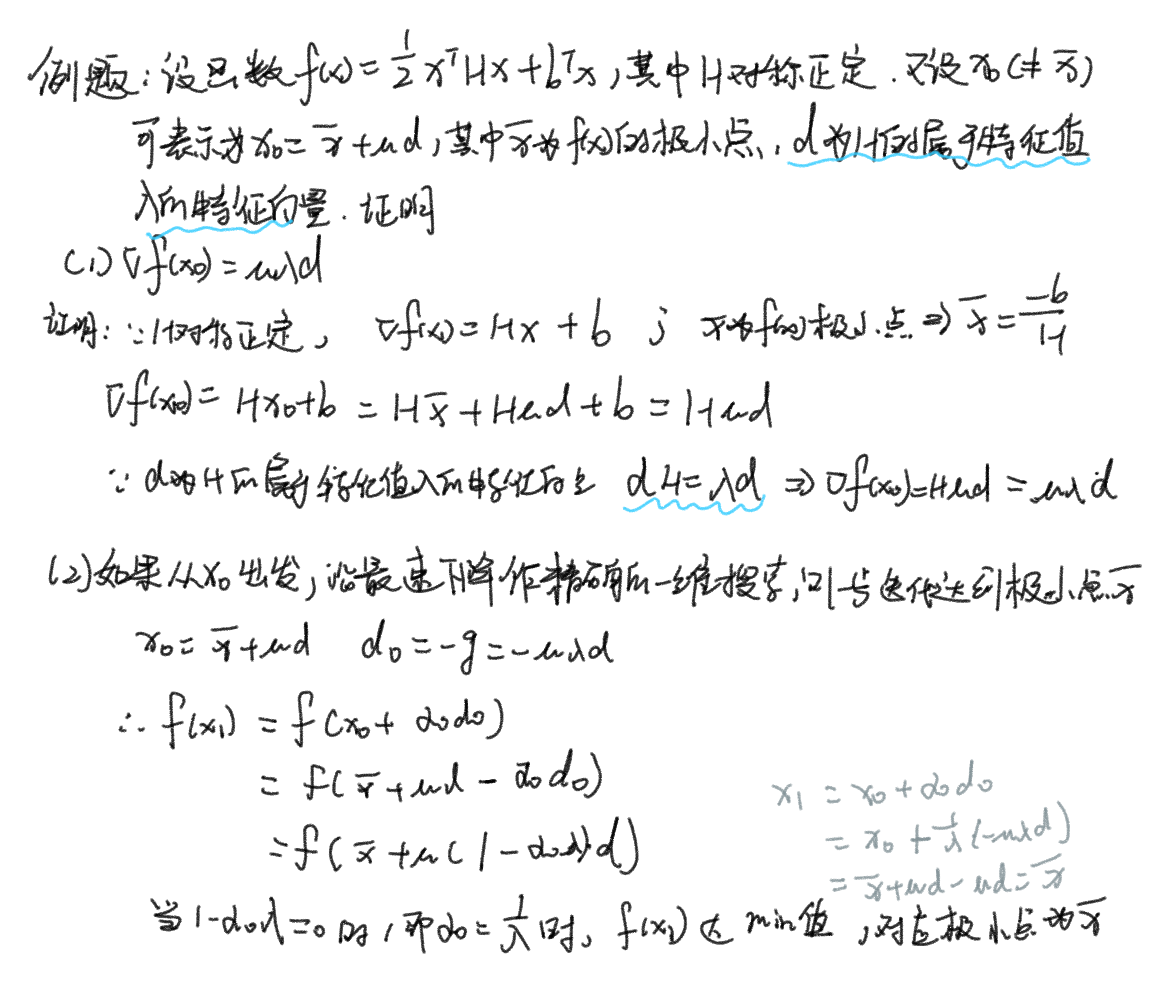 例题：设函数 f(x) = 1/2 xᵀHx + bᵀx，其中 H 对称正定．又设 x₀(≠ x̄)
可表示为 x₀ = x̄ + μd，其中 x̄ 为 f(x) 的极小点，d 为 H 的属于特征值
λ的特征向量．证明
(1) ∇f(x₀) = μλd
证明：∵ H对称正定， ∇f(x) = Hx + b ； x̄ 为 f(x) 极小点 ⇒ x̄ = -b/H
∇f(x₀) = Hx₀+b = Hx̄ + Hμd + b = Hμd
∵ d为H的属于特征值λ的特征向量 dH = λd ⇒ ∇f(x₀) = Hμd = μλd
(2) 如果从 x₀ 出发，沿最速下降作精确的一维搜索，则一步迭代达到极小点 x̄
x₀ = x̄ + μd d₀ = -g = -μλd
∴ f(x₁) = f(x₀ + α₀d₀)
= f(x̄ + μd - α₀d₀)
= f(x̄ + μ(1 - α₀λ)d)
x₁ = x₀ + α₀d₀
= x₀ + 1/λ(-μλd)
= x̄ + μd - μd = x̄
当 1-α₀λ = 0 时，即 α₀ = 1/λ 时，f(x₁) 达 min值，对应极小点为 x̄